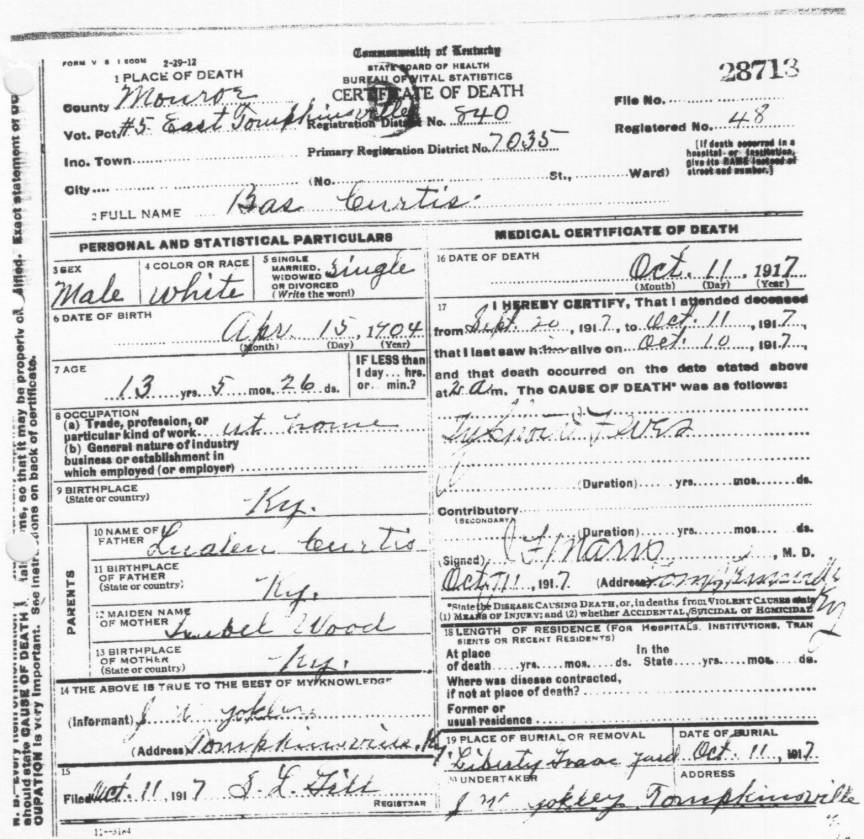 FORM V S 1 500M 2-29-12
Commonwealth of Kentucky
STATE BOARD OF HEALTH
BUREAU OF VITAL STATISTICS
CERTIFICATE OF DEATH
28713
1 PLACE OF DEATH
County Monroe
Vot. Pct. #5 East Tompkinsville Registration District No. 840
File No.
Registered No. 48
Ino. Town Primary Registration District No. 7035
[If death occurred in a hospital or institution, give its NAME instead of street and number.]
City (No. St., Ward)
2 FULL NAME Bas Curtis
PERSONAL AND STATISTICAL PARTICULARS
3 SEX Male
4 COLOR OR RACE White
5 SINGLE MARRIED, WIDOWED OR DIVORCED (Write the word) Single
6 DATE OF BIRTH
Apr. 15, 1904
(Month) (Day) (Year)
7 AGE
13 yrs. 5 mos. 26 ds.
IF LESS than 1 day... hrs. or... min.?
8 OCCUPATION
(a) Trade, profession, or
particular kind of work at home
(b) General nature of industry
business or establishment in
which employed (or employer)
9 BIRTHPLACE
(State or country) Ky.
PARENTS
10 NAME OF FATHER Curtis
11 BIRTHPLACE OF FATHER (State or country) Ky.
12 MAIDEN NAME OF MOTHER Wood
13 BIRTHPLACE OF MOTHER (State or country) Ky.
14 THE ABOVE IS TRUE TO THE BEST OF MY KNOWLEDGE
(Informant) J W Yokley
(Address) Tompkinsville, Ky
15
Filed Oct. 11, 1917
REGISTRAR
11-3184
MEDICAL CERTIFICATE OF DEATH
16 DATE OF DEATH
Oct. 11, 1917
(Month) (Day) (Year)
17 I HEREBY CERTIFY, That I attended deceased
from Sept. 20, 1917, to Oct. 11, 1917,
that I last saw him alive on Oct. 10, 1917,
and that death occurred on the date stated above
at 2 a m. The CAUSE OF DEATH* was as follows:
Typhoid Fever
(Duration) yrs. mos. ds.
Contributory
(SECONDARY)
(Duration) yrs. mos. ds.
(Signed) , M. D.
Oct. 11, 1917 (Address) Tompkinsville Ky
*State the DISEASE CAUSING DEATH, or, in deaths from VIOLENT CAUSES state
(1) MEANS OF INJURY; and (2) whether ACCIDENTAL, SUICIDAL or HOMICIDAL
18 LENGTH OF RESIDENCE (FOR HOSPITALS, INSTITUTIONS, TRAN
SIENTS OR RECENT RESIDENTS)
At place of death yrs. mos. ds. In the State yrs. mos. ds.
Where was disease contracted,
if not at place of death?
Former or
usual residence
19 PLACE OF BURIAL OR REMOVAL
Liberty Grave yard
DATE OF BURIAL
Oct. 11, 1917
20 UNDERTAKER
J W Yokley
ADDRESS
Tompkinsville
should state CAUSE OF DEATH
OUPATION is very important. See
so that it may be properly
on back of certificate.
Exact statement of